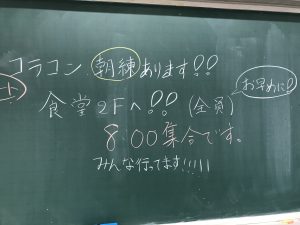 コラコン 朝練あります!!
食堂2Fへ!! (全員)
お早めに!
8:00集合です。
みんな行ってます!!!!!